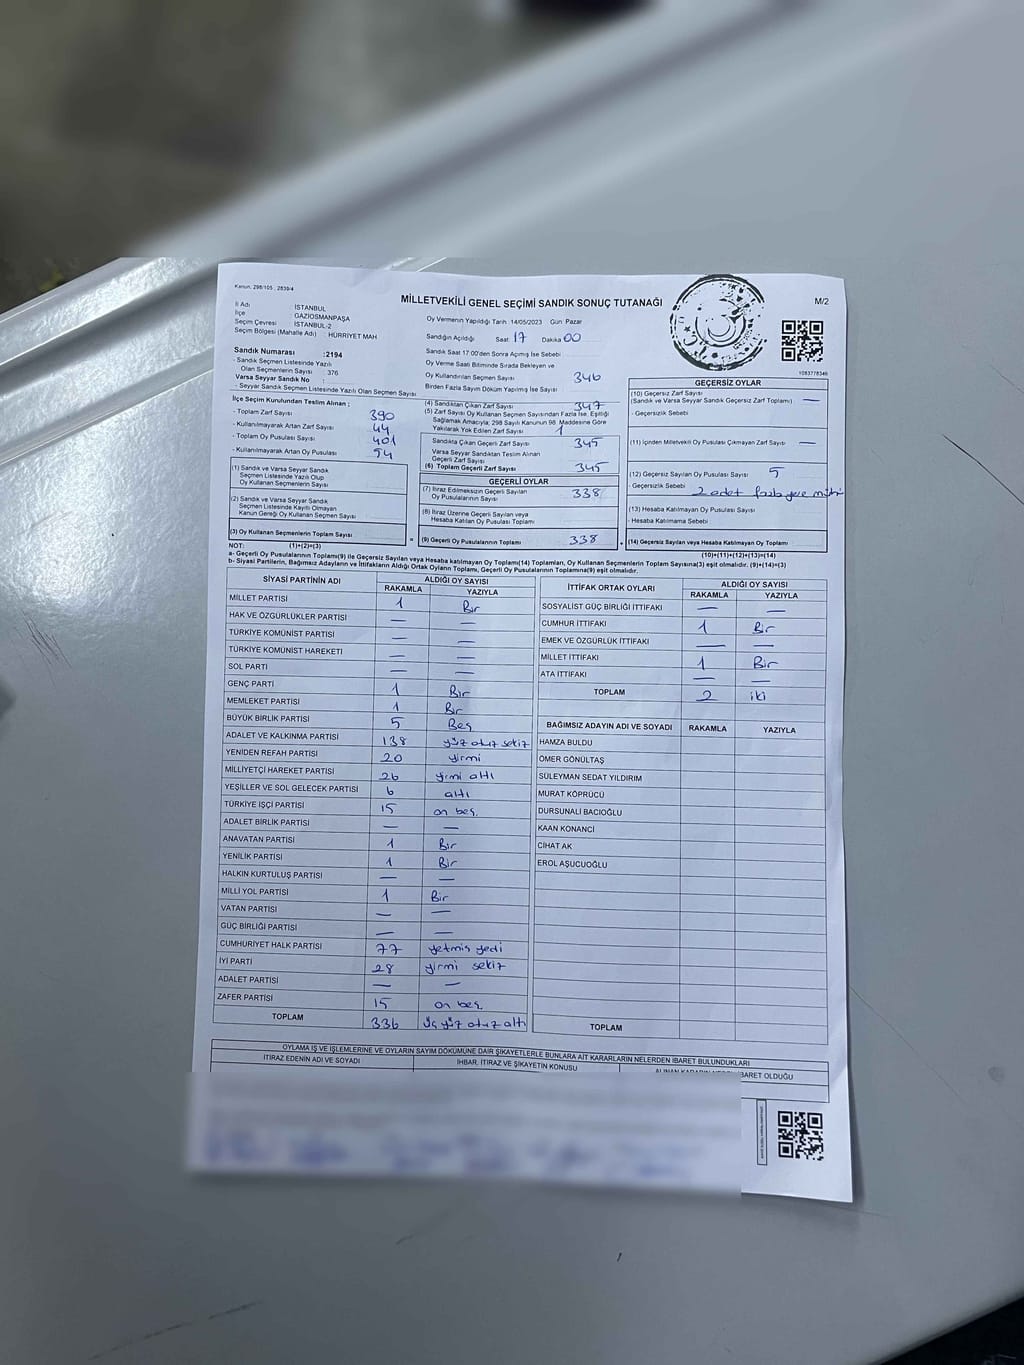 Kanun: 298/105 , 2839/4
MİLLETVEKİLİ GENEL SEÇİMİ SANDIK SONUÇ TUTANAĞI
M/2
İl Adı : İSTANBUL
İlçe : GAZİOSMANPAŞA
Seçim Çevresi : İSTANBUL-2
Seçim Bölgesi (Mahalle Adı) : HÜRRİYET MAH
Oy Vermenin Yapıldığı Tarih: 14/05/2023 Gün: Pazar
Sandığın Açıldığı Saat: 17 Dakika 00
1083778346
Sandık Numarası :2194
- Sandık Seçmen Listesinde Yazılı
Olan Seçmenlerin Sayısı : 376
Varsa Seyyar Sandık No :
- Seyyar Sandık Seçmen Listesinde Yazılı Olan Seçmen Sayısı
İlçe Seçim Kurulundan Teslim Alınan ;
- Toplam Zarf Sayısı 390
- Kullanılmayarak Artan Zarf Sayısı 44
- Toplam Oy Pusulası Sayısı 401
- Kullanılmayarak Artan Oy Pusulası 54
(1) Sandık ve Varsa Seyyar Sandık
Seçmen Listesinde Yazılı Olup
Oy Kullanan Seçmenlerin Sayısı
(2) Sandık ve Varsa Seyyar Sandık
Seçmen Listesinde Kayıtlı Olmayan
Kanun Gereği Oy Kullanan Seçmen Sayısı
(3) Oy Kullanan Seçmenlerin Toplam Sayısı
(1)+(2)=(3)
Sandık Saat 17.00'den Sonra Açılmış İse Sebebi
Oy Verme Saati Bitiminde Sırada Bekleyen ve
Oy Kullandırılan Seçmen Sayısı 346
Birden Fazla Sayım Döküm Yapılmış İse Sayısı
(4) Sandıktan Çıkan Zarf Sayısı 347
(5) Zarf Sayısı Oy Kullanan Seçmen Sayısından Fazla İse, Eşitliği
Sağlamak Amacıyla; 298 Sayılı Kanunun 98. Maddesine Göre
Yakılarak Yok Edilen Zarf Sayısı 1
Sandıkta Çıkan Geçerli Zarf Sayısı 345
Varsa Seyyar Sandıktan Teslim Alınan
Geçerli Zarf Sayısı
(6) Toplam Geçerli Zarf Sayısı 345
GEÇERLİ OYLAR
(7) İtiraz Edilmeksizin Geçerli Sayılan
Oy Pusulalarının Sayısı 338
(8) İtiraz Üzerine Geçerli Sayılan veya
Hesaba Katılan Oy Pusulası Toplamı
(9) Geçerli Oy Pusulalarının Toplamı 338
GEÇERSİZ OYLAR
(10) Geçersiz Zarf Sayısı
(Sandık ve Varsa Seyyar Sandık Geçersiz Zarf Toplamı) —
- Geçersizlik Sebebi
(11) İçinden Milletvekili Oy Pusulası Çıkmayan Zarf Sayısı —
(12) Geçersiz Sayılan Oy Pusulası Sayısı 5
- Geçersizlik Sebebi 2 adet fazla yere mühür
(13) Hesaba Katılmayan Oy Pusulası Sayısı
- Hesaba Katılmama Sebebi
(14) Geçersiz Sayılan veya Hesaba Katılmayan Oy Toplamı
(10)+(11)+(12)+(13)=(14)
NOT:
a- Geçerli Oy Pusulalarının Toplamı(9) ile Geçersiz Sayılan veya Hesaba katılmayan Oy Toplamı(14) Toplamları, Oy Kullanan Seçmenlerin Toplam Sayısına(3) eşit olmalıdır. (9)+(14)=(3)
b- Siyasi Partilerin, Bağımsız Adayların ve İttifakların Aldığı Ortak Oyların Toplamı, Geçerli Oy Pusulalarının Toplamına(9) eşit olmalıdır.
SİYASİ PARTİNİN ADI ALDIĞI OY SAYISI
RAKAMLA YAZIYLA
MİLLET PARTİSİ 1 Bir
HAK VE ÖZGÜRLÜKLER PARTİSİ — —
TÜRKİYE KOMÜNİST PARTİSİ — —
TÜRKİYE KOMÜNİST HAREKETİ — —
SOL PARTİ — —
GENÇ PARTİ 1 Bir
MEMLEKET PARTİSİ 1 Bir
BÜYÜK BİRLİK PARTİSİ 5 Beş
ADALET VE KALKINMA PARTİSİ 138 yüz otuz sekiz
YENİDEN REFAH PARTİSİ 20 yirmi
MİLLİYETÇİ HAREKET PARTİSİ 26 yirmi altı
YEŞİLLER VE SOL GELECEK PARTİSİ 6 altı
TÜRKİYE İŞÇİ PARTİSİ 15 on beş.
ADALET BİRLİK PARTİSİ — —
ANAVATAN PARTİSİ 1 Bir
YENİLİK PARTİSİ 1 Bir
HALKIN KURTULUŞ PARTİSİ — —
MİLLİ YOL PARTİSİ 1 Bir
VATAN PARTİSİ — —
GÜÇ BİRLİĞİ PARTİSİ — —
CUMHURİYET HALK PARTİSİ 77 yetmiş yedi
İYİ PARTİ 28 yirmi sekiz
ADALET PARTİSİ — —
ZAFER PARTİSİ 15 on beş.
TOPLAM 336 üç yüz otuz altı
İTTİFAK ORTAK OYLARI ALDIĞI OY SAYISI
RAKAMLA YAZIYLA
SOSYALİST GÜÇ BİRLİĞİ İTTİFAKI — —
CUMHUR İTTİFAKI 1 Bir
EMEK VE ÖZGÜRLÜK İTTİFAKI — —
MİLLET İTTİFAKI 1 Bir
ATA İTTİFAKI — —
TOPLAM 2 iki
BAĞIMSIZ ADAYIN ADI VE SOYADI RAKAMLA YAZIYLA
HAMZA BULDU
ÖMER GÖNÜLTAŞ
SÜLEYMAN SEDAT YILDIRIM
MURAT KÖPRÜCÜ
DURSUNALİ BACIOĞLU
KAAN KONANCİ
CİHAT AK
EROL AŞUCUOĞLU
TOPLAM
OYLAMA İŞ VE İŞLEMLERİNE VE OYLARIN SAYIM DÖKÜMÜNE DAİR ŞİKAYETLERLE BUNLARA AİT KARARLARIN NELERDEN İBARET BULUNDUKLARI
İTİRAZ EDENİN ADI VE SOYADI İHBAR, İTİRAZ VE ŞİKAYETİN KONUSU ALINAN KARARIN NEDEN İBARET OLDUĞU